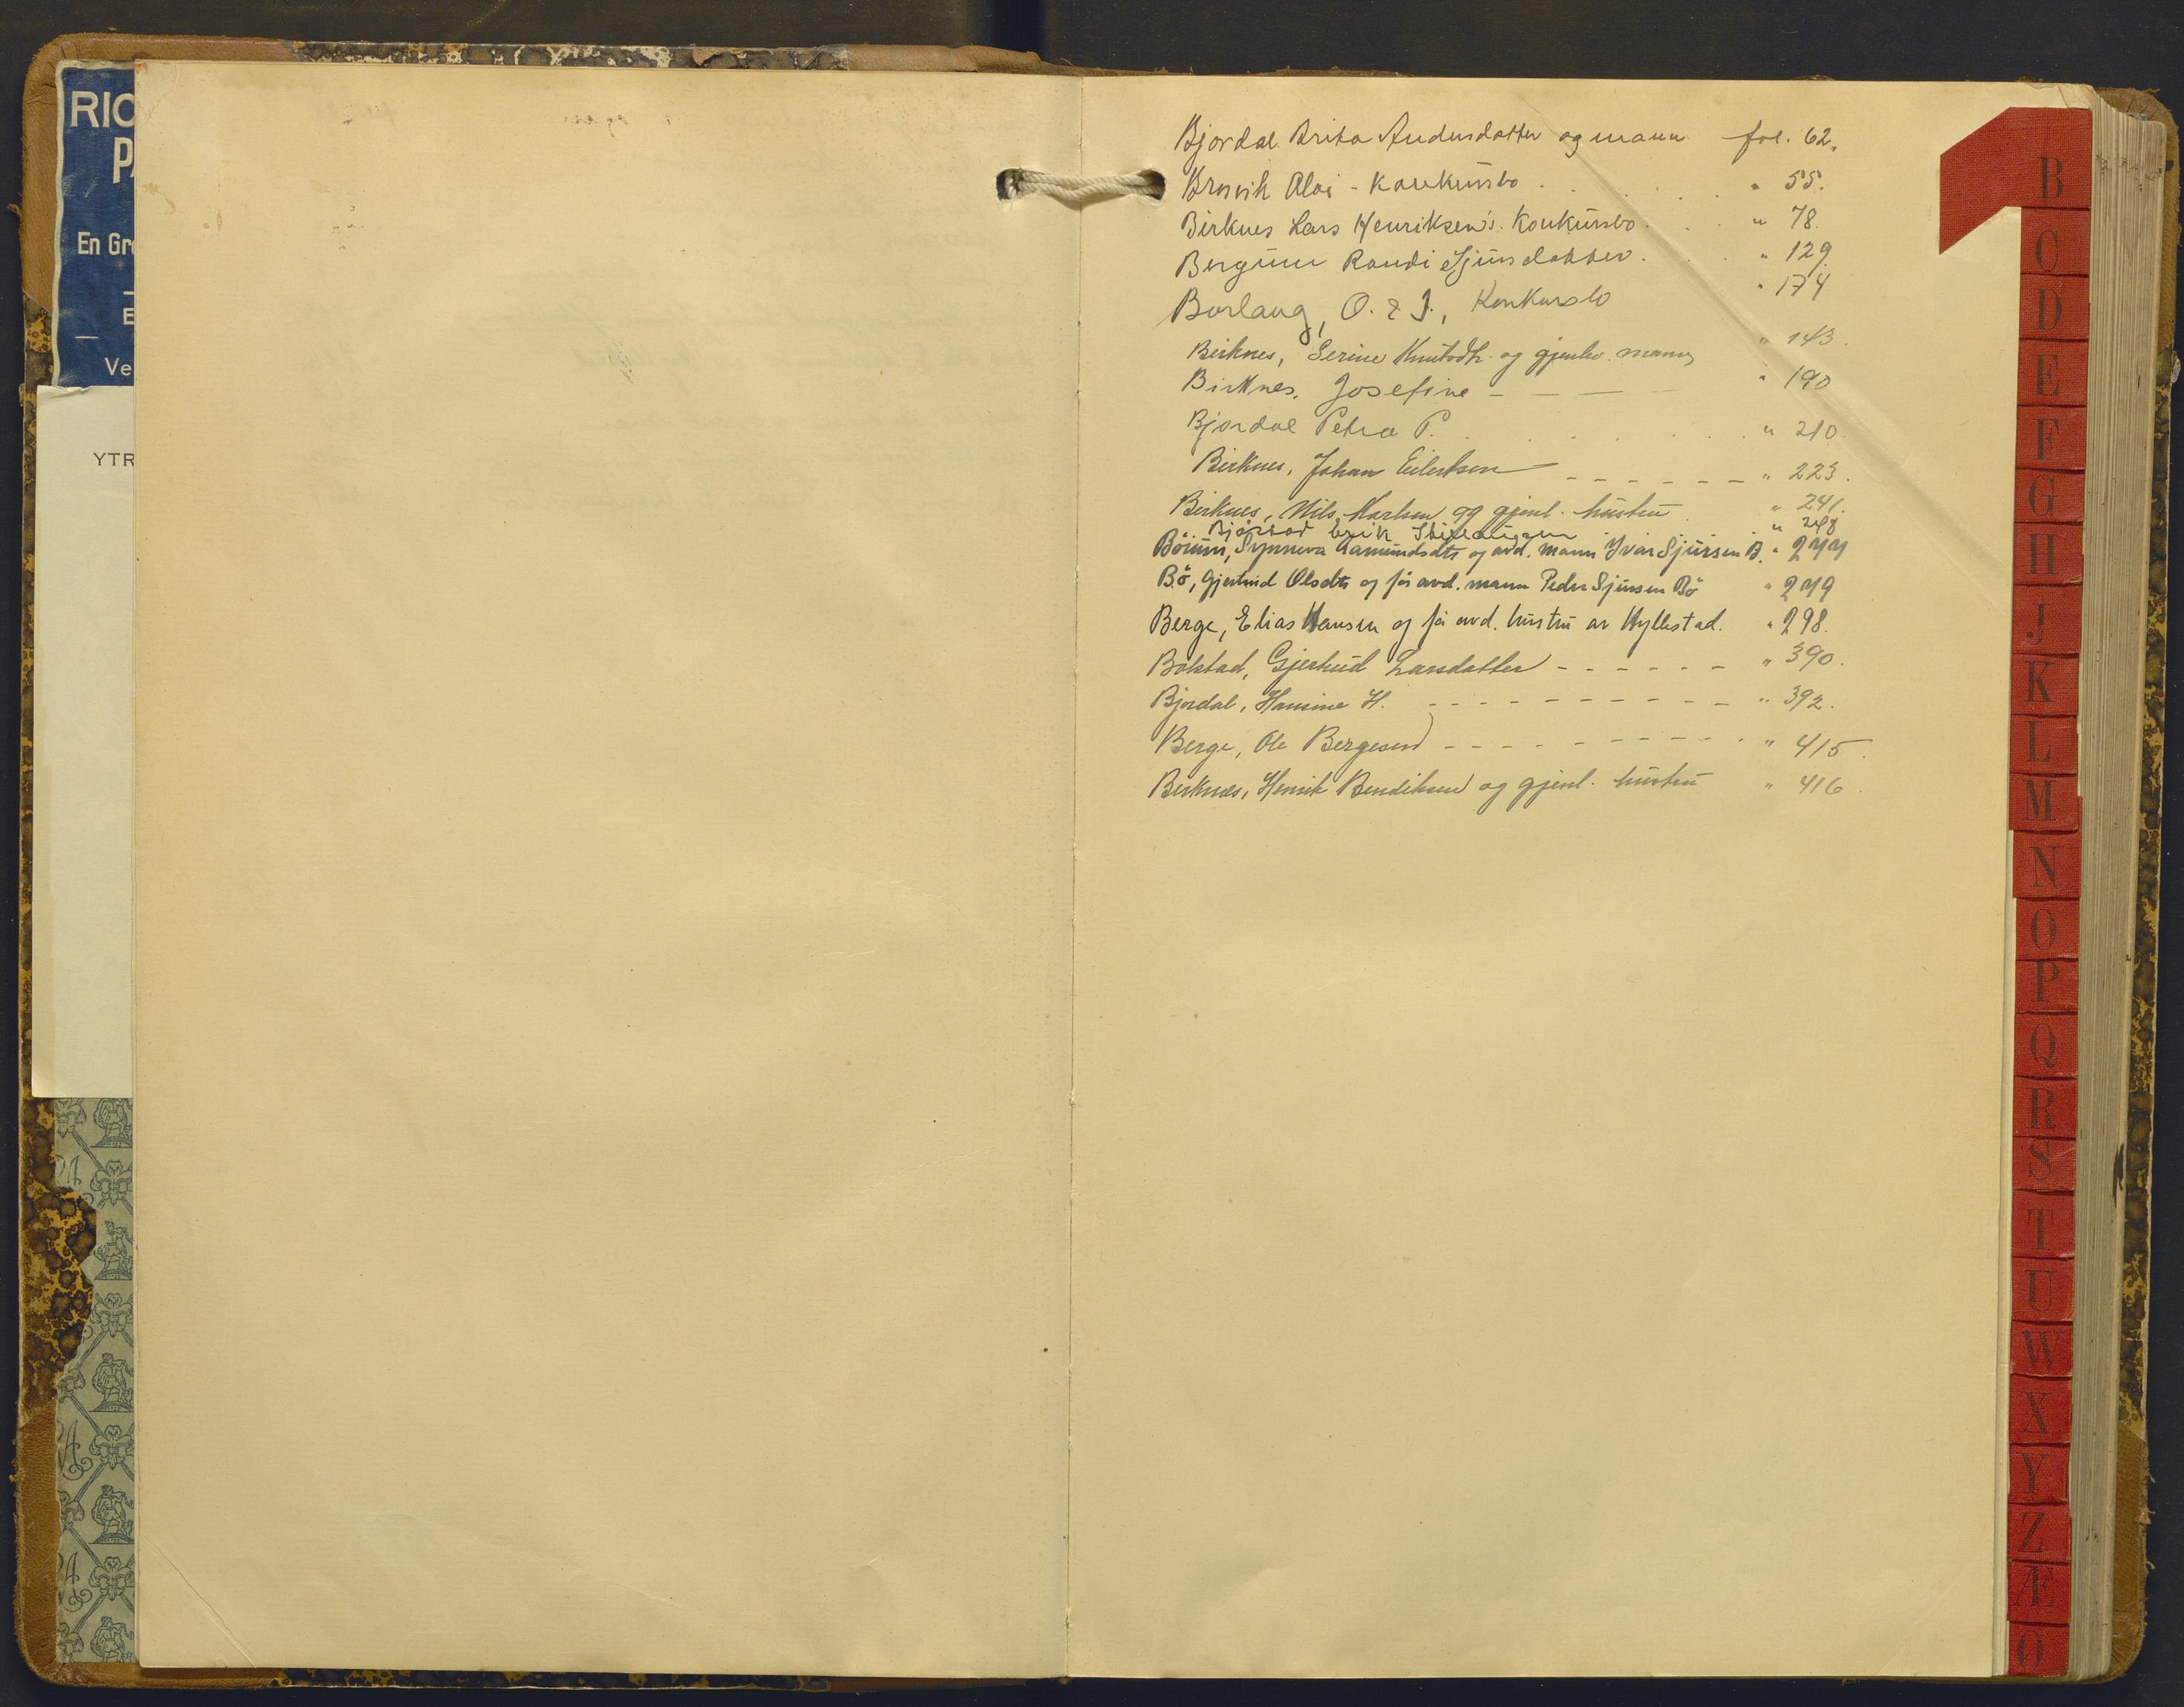 RIC
P
En Gr
E
Ve
YTR
Bjordal Brita Andersdatter og mann fol. 62.
Konkursbo . . . . " 55.
Birknes Lars Henriksen's Konkursbo . . " 78.
Randi Sjursdatter . . . " 129
Borlaug, O. & J., Konkursbo " 174
Birknes, Serine Knutsdtr. og gjenlev. mann " 143.
Birknes, Josefine - - - - " 190
Bjordal Petra P. . . . . . . " 210.
Birknes, Johan Eilertsen - - - - - - " 223.
Birknes, Nils Karlsen og gjenl. hustru " 241.
Erik " 248
Bøium, Synneva Aamundsdtr og avd. mann Ivar Sjursen B. " 244
Bö, Gjertrud Olsdtr og før avd. mann Peder Sjursen Bö " 279
Berge, Elias Hansen og før avd. hustru av Hyllestad. " 298.
Bolstad, Gjertrud Larsdatter - - - - - - " 390.
Bjordal, Hansine H. - - - - - - - - - - " 392.
Berge, Ole Bergesen - - - - - - - - - - " 415.
Birknes, Henrik Bendiksen og gjenl. hustru " 416.
B
C
D
E
F
G
H
J
K
L
M
N
O
P
Q
R
S
T
U
W
X
Y
Z
Æ
Ø